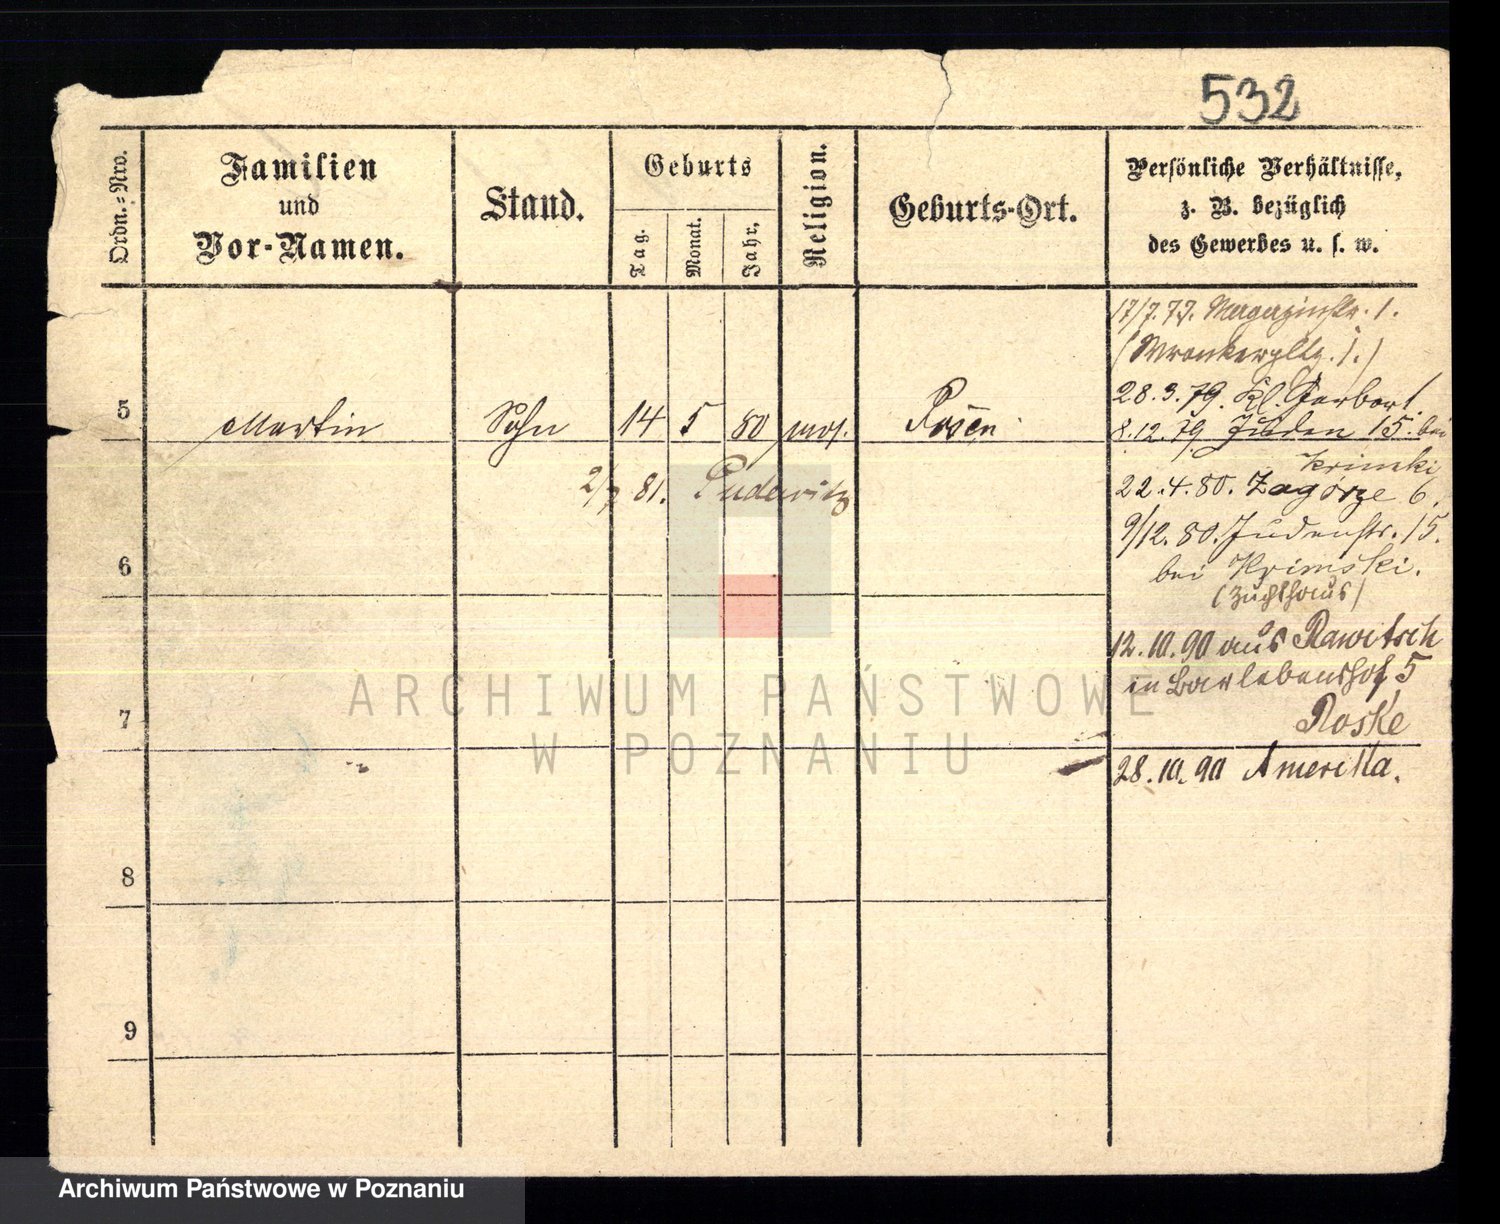 532
Ordn.-Nro.
Familien
und
Vor-Namen.
Stand.
Geburts
Tag.
Monat.
Jahr,
Religion.
Geburts-Ort.
Persönliche Verhältnisse,
z. B. bezüglich
des Gewerbes u. s. w.
17/7.77. Magazinstr. 1.
(Wronkerpltz. 1.)
28.3.79. Kl. Gerberst.
5 Martin Sohn 14 5 80 mos. Posen
8.12.79 Juden 15. bei
Krimski
2/7 81. Pudewitz
22.4.80. Zagorze 6.
9/12.80. Judenstr. 15.
6
bei Krimski.
(Zuchthaus)
12.10.90 aus Rawitsch
in Barlebenshof 5
7
Roske
28.10.90 Amerika.
8
9
ARCHIWUM PAŃSTWOWE
W POZNANIU
Archiwum Państwowe w Poznaniu